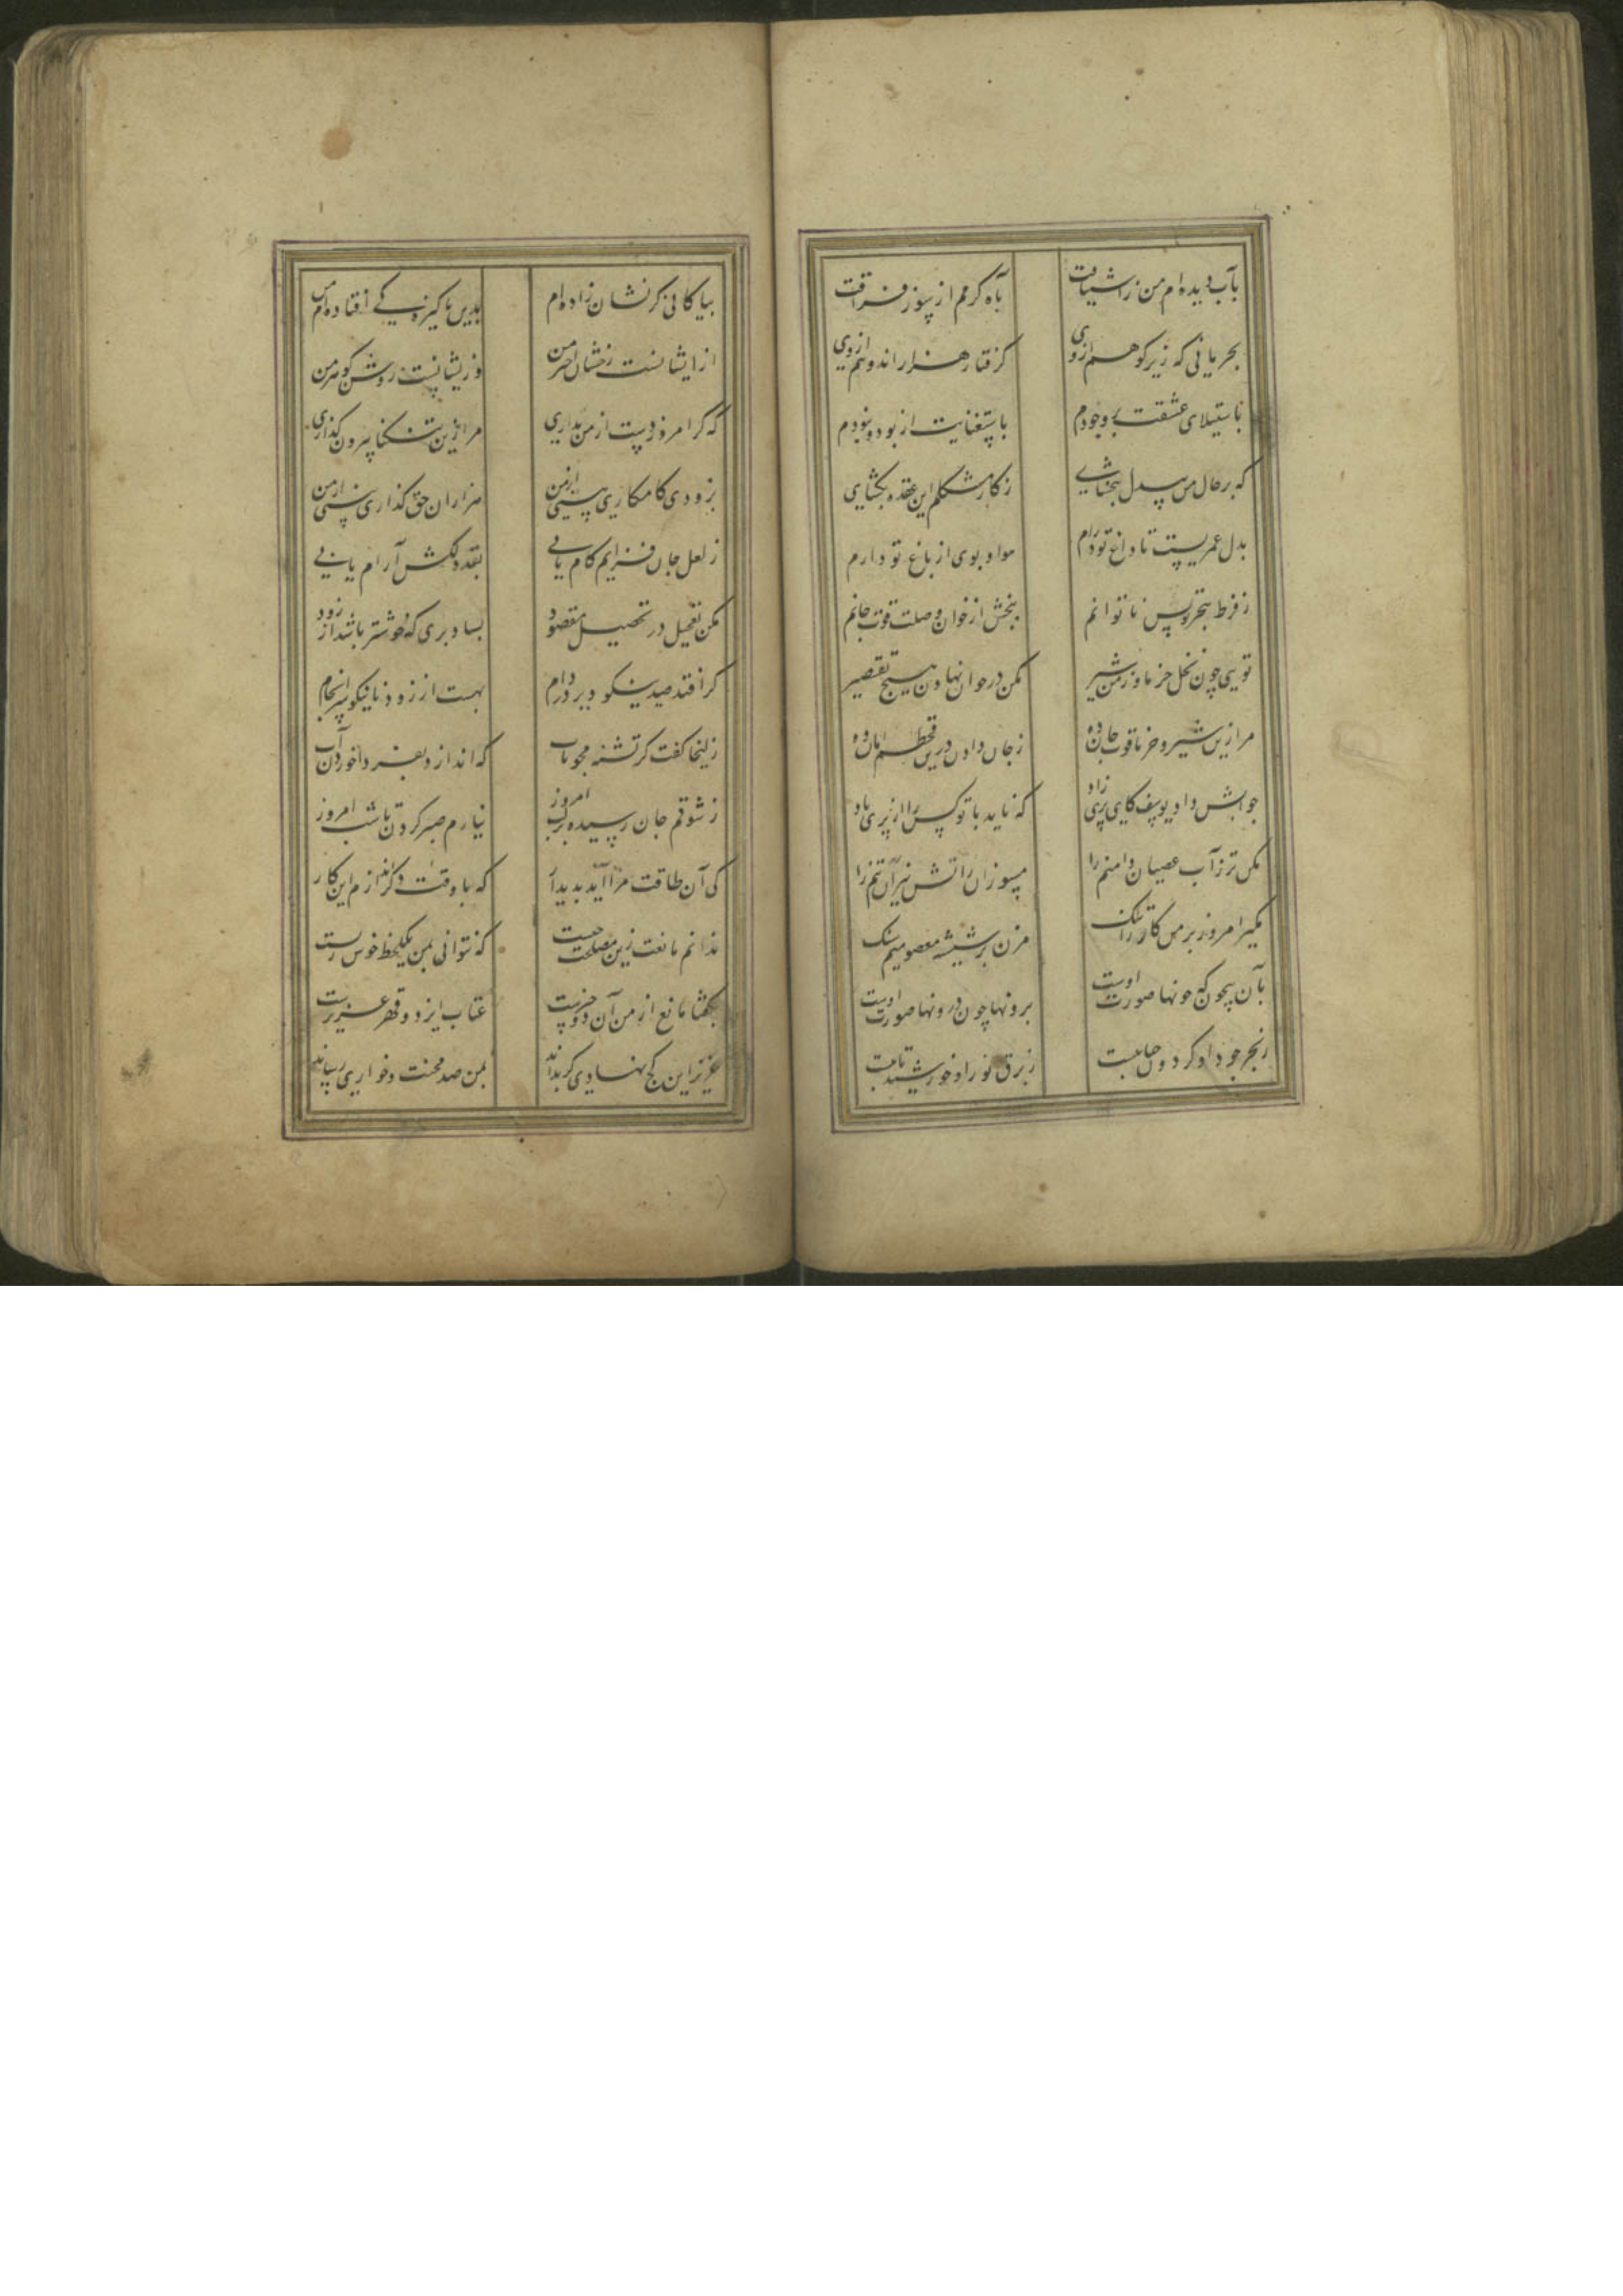 بآب دیده‌ام من ز اشتیاقت
بآه گرمم از سوز فراقت
بحرمانی که زیر کوهم از وی
گرفتار هزار اندوهم از وی
باستیلای عشقت بر وجودم
باستغنایت از بود و نبودم
که بر حال من بیدل ببخشای
ز کار مشکلم این عقده بگشای
بدل عمریست تا داغ تو دارم
هوا و بوی از باغ تو دارم
ز قحط هجر بس ناتوانم
ببخش از خوان وصلت قوت جانم
تویی چون نخل خرما وز من شیر
مکن در خوان نهادن هیچ تقصیر
مرا زین شیر و خرما قوت جان ده
ز جان دادن درین قحطم امان ده
جوابش داد یوسف کای پری زاد
که ناید با تو کس را از پری یاد
مکن تر ز آب عصیان دامنم را
مسوزان ز آتش نیران تنم را
مگیر امروز بر من کار را تنگ
مزن بر شیشه معصومیم سنگ
بآن بیچون که چونها صورت اوست
برونها چون درونها صورت اوست
ز بحر جود او گردون حبابیست
ز برق نور او خورشید تابیست
بپاکانی کزیشان زاده‌ام من
بدین پاکیزگی افتاده‌ام من
ازیشانست رخشان اختر من
وزیشانست روشن گوهر من
که گر امروز دست از من بداری
مرا زین تنگنا بیرون گذاری
بزودی کامکاری بینی از من
هزاران حق گذاری بینی از من
ز لعل جان فزایم کام یابی
بقد دلکشم آرام یابی
مکن تعجیل در تحصیل مقصود
بسا دیری که خوشتر باشد از زود
گر افتد صید نیکو دیر در دام
بهست از زود نانیکو سرانجام
زلیخا گفت کز تشنه مجو تاب
که اندازد بفردا خوردن آب
ز شوقم جان رسیده بر لب امروز
نیارم صبر کردن تا شب امروز
کی آن طاقت مرا آید پدیدار
که با وقت دگر اندازم این کار
ندانم مانعت زین مصلحت چیست
که نتوانی بمن یکلحظه خوش زیست
بگفتا مانع از من آن دو چیزست
عتاب ایزد و قهر عزیزست
عزیز این کج نهادی گر بداند
بمن صد محنت و خواری رساند